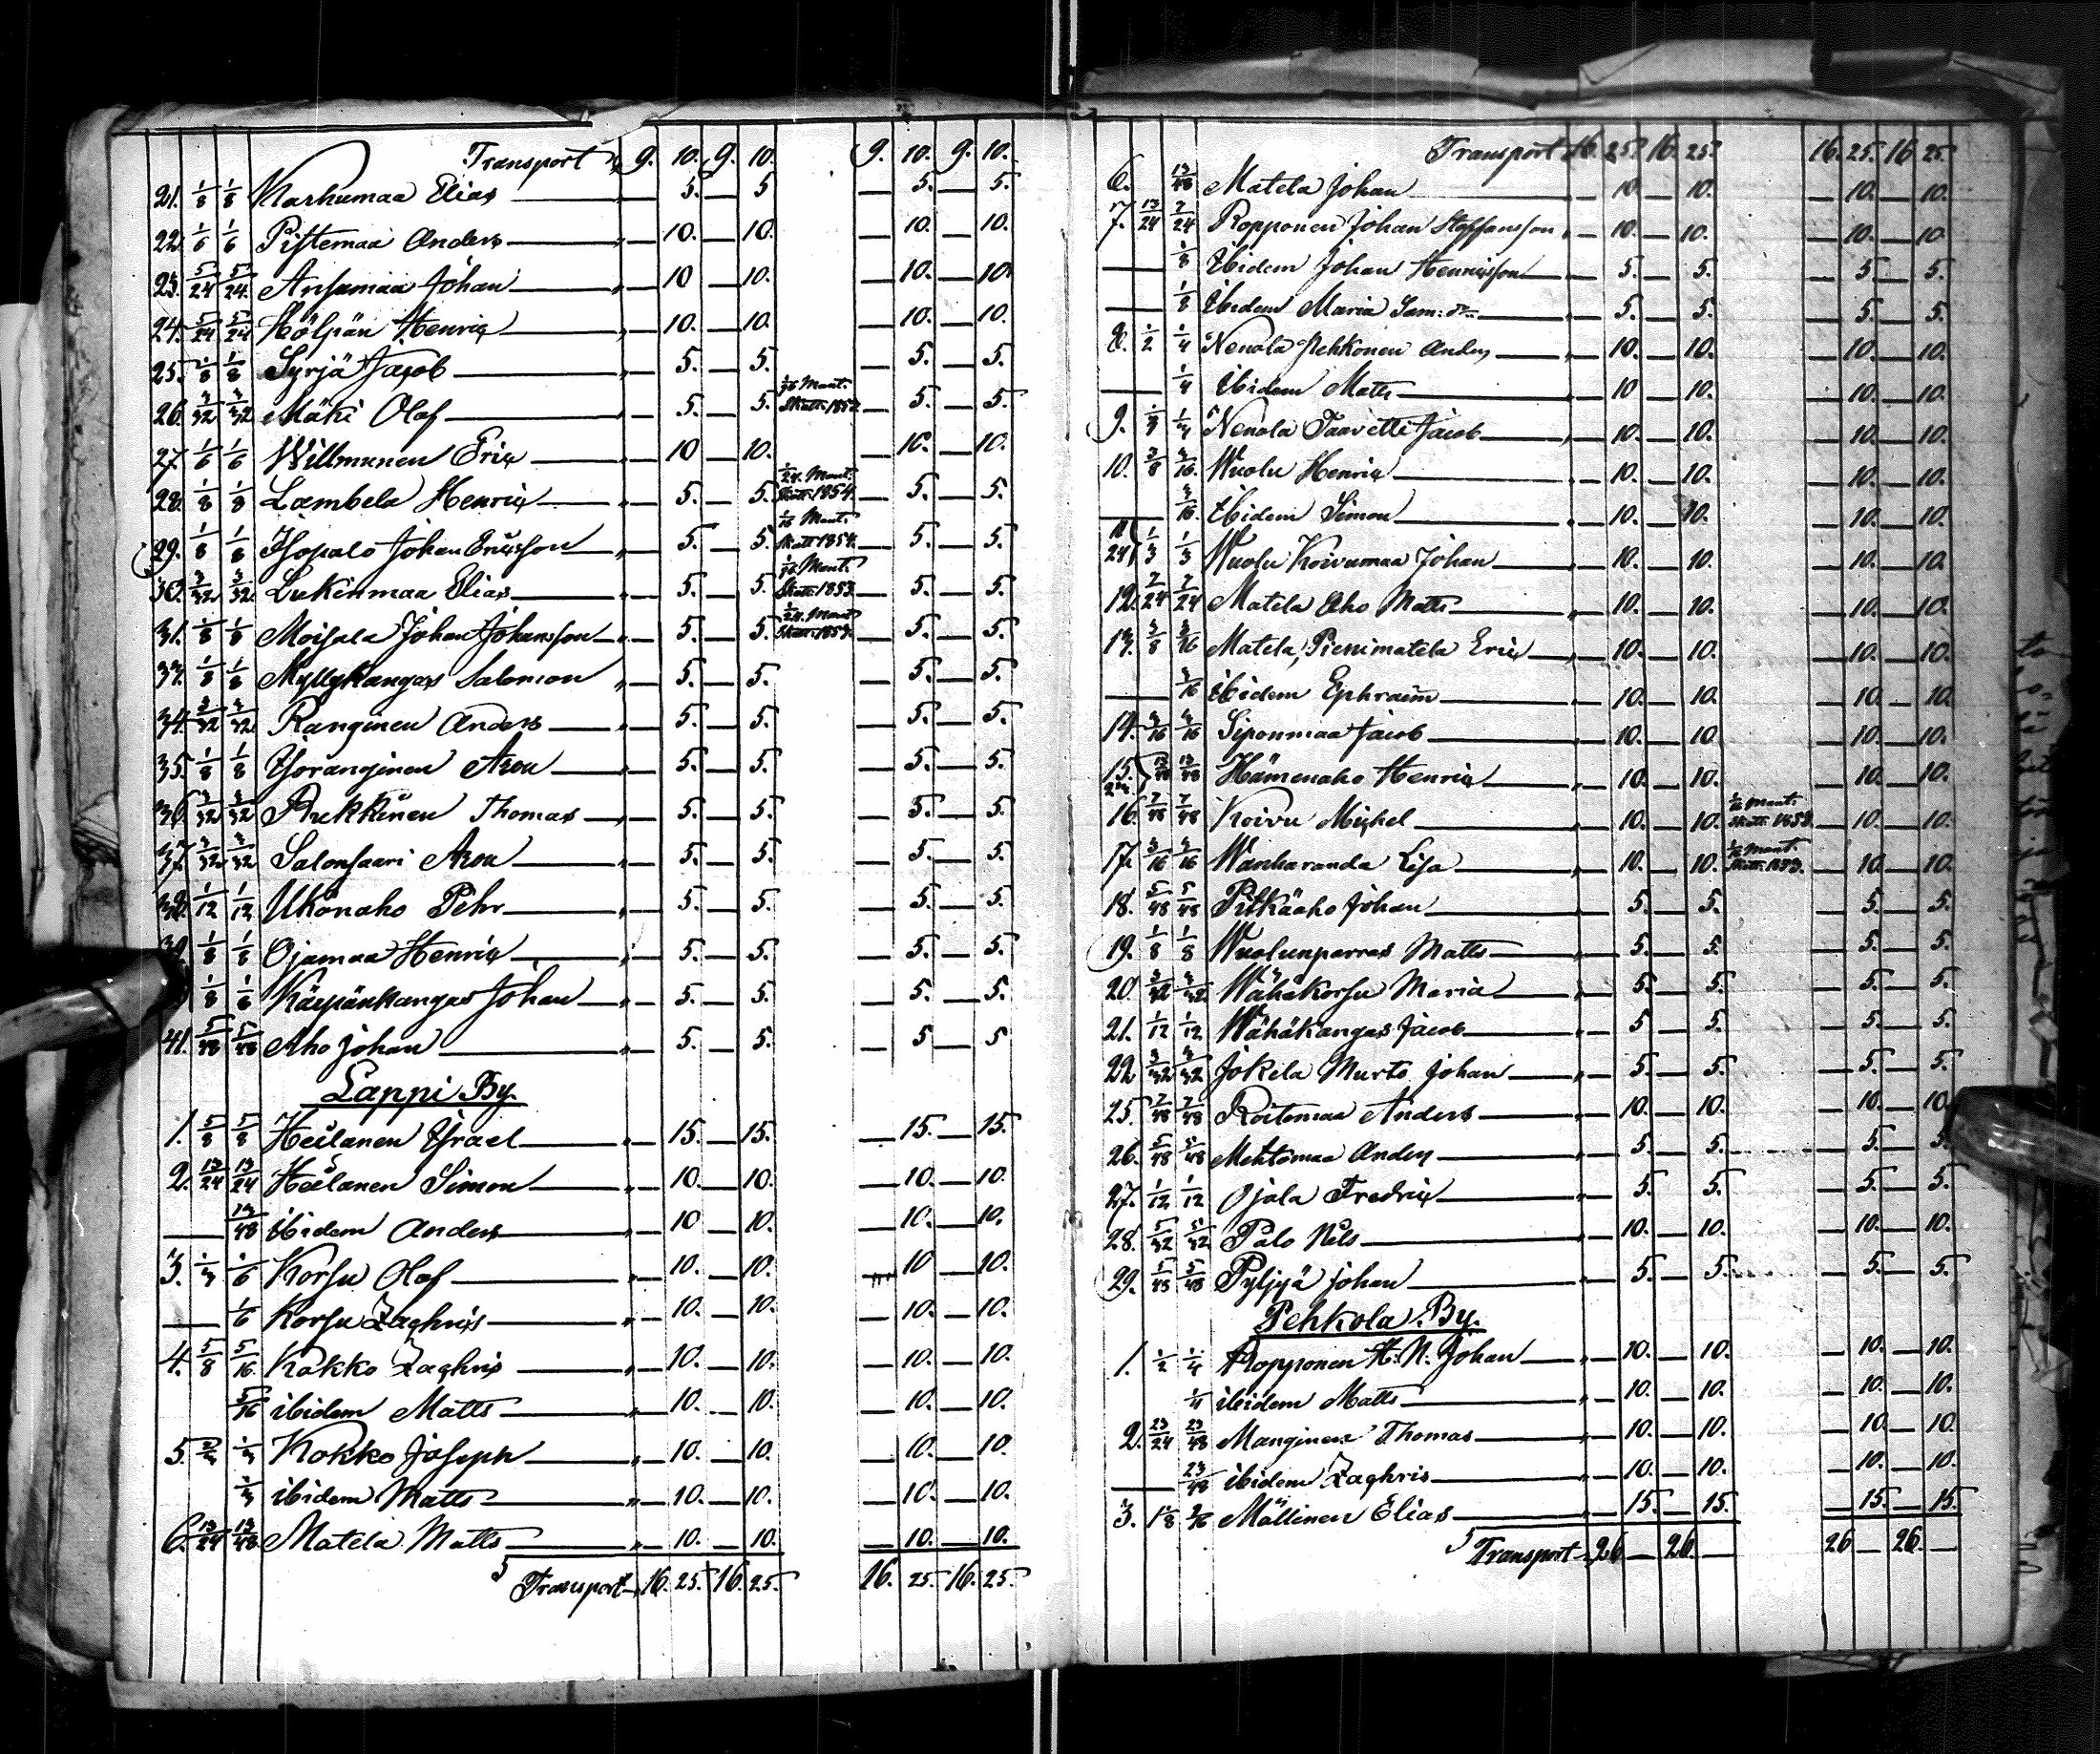 Transport 9. 10. 9. 10. 9. 10. 9. 10.
21. 1/8 1/8 Karhumaa Elias — 5. — 5 — 5. — 5.
22. 1/6 1/6 Pistemaa Anders — 10. — 10. — 10. — 10.
23. 5/24 5/24 Ansamaa Johan — 10 — 10. — 10. — 10.
24. 5/24 5/24 Hölpän Henric — 10. — 10. — 10. — 10.
25. 1/8 1/8 Syrjä Jacob — 5. — 5. — 5. — 5.
26. 3/32 3/32 Mäki Olof — 5. — 5. Mant. Skatt. — 5. — 5.
27. 1/6 1/6 Willmunen Eric — 10 — 10. — 10. — 10.
28. 1/8 1/8 Lambela Henric — 5. — 5. 1/24 Mant. Skatt. 1854. — 5. — 5.
29. 1/8 1/8 Isopalo Johan Ericsson — 5. — 5. 1/16 Mant. Skatt. 1854. — 5. — 5.
30. 3/32 3/32 Lukinmaa Elias — 5. — 5. Mant. Skatt. 1853. — 5. — 5.
31. 1/8 1/8 Moisala Johan Johansson — 5. — 5. 1/24 Mant. Skatt. 1853. — 5. — 5.
1/8 1/8 Myllykangas Salomon — 5. — 5. — 5. — 5.
34. 3/32 3/32 Ranginen Anders — 5. — 5. — 5. — 5.
35. 1/8 1/8 Isoranginen Aron — 5. — 5. — 5. — 5.
36. 3/32 3/32 Rukkinen Thomas — 5. — 5. — 5. — 5.
37. 3/32 3/32 Salonsaari Aron — 5. — 5. — 5. — 5.
38. 1/12 1/12 Ukonaho Pehr — 5. — 5. — 5. — 5.
39. 1/8 1/8 Ojamaa Henric — 5. — 5. — 5. — 5.
1/8 1/8 Kärpänkangas Johan — 5. — 5. — 5. — 5.
41. 5/48 5/48 Aho Johan — 5. — 5. — 5 — 5
Lappi By.
1. 5/8 5/8 Heilanen Israel — 15. — 15. — 15. — 15.
2. 13/24 13/24 Heilanen Simon — 10. — 10. — 10. — 10.
— 13/48 ibidem Anders — 10 — 10. — 10. — 10.
3. 1/3 1/6 Korsu Olof — 10. — 10. — 10 — 10.
— 1/6 Korsu Zachris — 10. — 10. — 10. — 10.
4. 5/8 5/16 Kokko Zachris — 10. — 10. — 10. — 10.
5/16 ibidem Matts — 10. — 10. — 10. — 10.
5. 2/3 1/3 Kokko Joseph — 10. — 10. — 10. — 10.
1/3 ibidem Matts — 10. — 10. — 10. — 10.
6. 13/24 13/48 Matela Matts — 10. — 10. — 10. — 10.
Transport 16. 25. 16. 25. 16. 25. 16. 25.
Transport 16. 25. 16. 25. 16. 25. 16 25.
6. 13/48 Matela Johan — 10. — 10. — 10. — 10.
7. 13/24 7/24 Ropponen Johan Staffansson — 10. — 10. — 10. — 10.
— 1/8 Ibidem Johan Henricsson — 5. — 5. — 5. — 5.
— 1/8 Ibidem Maria Sam: dr. — 5. — 5. — 5. — 5.
8. 1/2 1/4 Nenola Pehkonen Anders — 10. — 10. — 10. — 10.
— 1/4 Ibidem Matts — 10 — 10. — 10. — 10.
9. 1/3 1/3 Nenola Taavetti Jacob — 10. — 10. — 10. — 10.
10. 3/8 3/16 Wuolu Henric — 10. — 10. — 10. — 10.
— 3/16 Ibidem Simon — 10. — 10. — 10. — 10.
11 24 1/3 1/3 Wuolu Koivumaa Johan — 10. — 10. — 10. — 10.
12. 7/24 7/24 Matela Aho Matts — 10. — 10. — 10. — 10.
13. 3/8 3/16 Matela, Pienimatela Eric — 10. — 10. — 10. — 10.
— 3/16 ibidem Ephraim — 10. — 10. — 10. — 10.
14. 3/16 3/16 Siponmaa Jacob — 10. — 10. — 10. — 10.
15. 13/48 13/48 Hämenaho Henric — 10. — 10. — 10. — 10.
16. 7/48 7/48 Koivu Michel — 10. — 10. Mant. Skatt. 1853. — 10. — 10.
17. 3/16 3/16 Wanharanda Lisa — 10. — 10. Mant. Skatt. 1853. — 10. — 10.
18. 5/48 5/48 Pitkäaho Johan — 5. — 5. — 5. — 5.
19. 1/8 1/8 Wuolunparras Matts — 5. — 5. — 5. — 5.
20 3/32 3/32 Wähäkorsu Maria — 5. — 5. — 5. — 5.
21. 1/12 1/12 Wähäkangas Jacob — 5 — 5. — 5. — 5.
22 3/32 3/32 Jokela Murto Johan — 5. — 5. — 5. — 5.
25 7/48 7/48 Roitomaa Anders — 10. — 10. — 10. — 10.
26. 5/48 5/48 Mehtomaa Anders — 5. — 5. — 5. — 5.
27. 1/12 1/12 Ojala Fredric — 5. — 5. — 5. — 5.
28. 5/32 5/32 Palo Nils — 10. — 10. — 10. — 10.
29. 5/48 5/48 Pyljyä Johan — 5. — 5. — 5. — 5.
Pehkola By.
1. 1/2 1/4 Ropponen H: N: Johan — 10. — 10. — 10. — 10.
1/4 ibidem Matts — 10. — 10. — 10. — 10.
2. 23/24 23/48 Manginen Thomas — 10. — 10. — 10. — 10.
— 23/48 ibidem Zachris — 10. — 10. — 10. — 10.
3. 1 1/8 Mällinen Elias — 15. — 15. — 15. — 15.
Transport 26 — 26. — 26 — 26. —